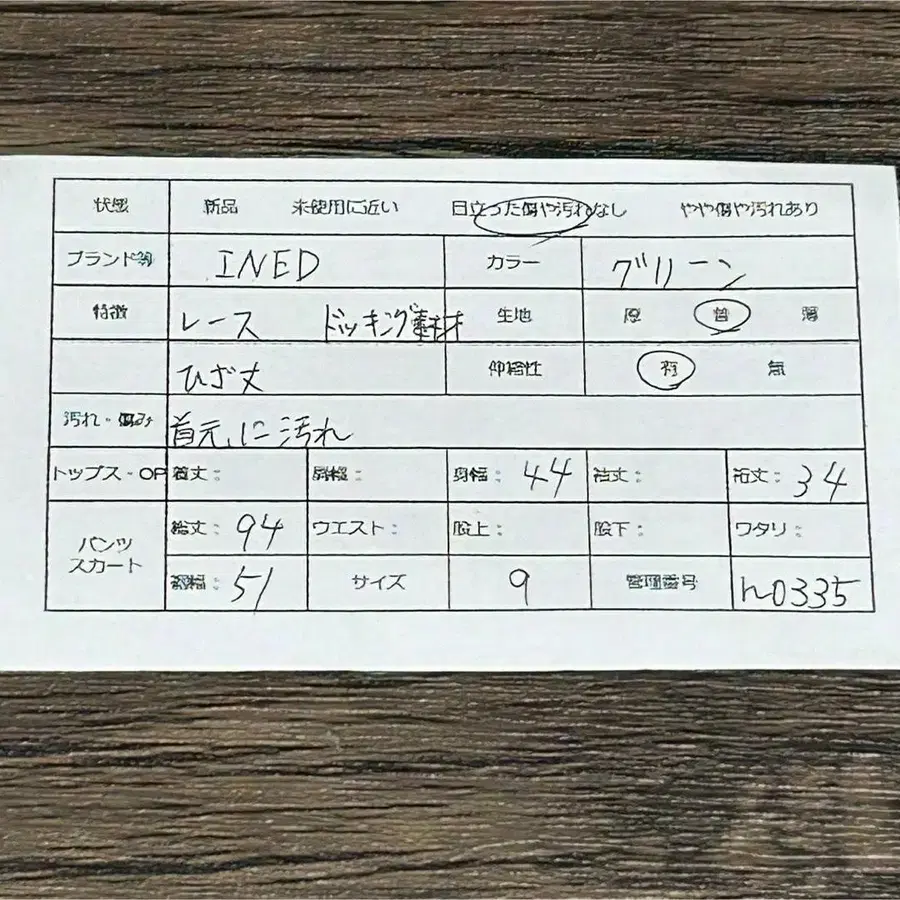 状態 新品 未使用に近い 目立った傷や汚れなし やや傷や汚れあり
ブランド等 INED カラー グリーン
特徴 レース ドッキング素材 生地 厚 普 薄
ひざ丈 伸縮性 有 無
汚れ・傷み 首元に汚れ
トップス・OP 着丈: 肩幅: 身幅: 44 袖丈: 裄丈: 34
パンツ スカート 総丈: 94 ウエスト: 股上: 股下: ワタリ:
裾幅: 51 サイズ 9 管理番号 n0335